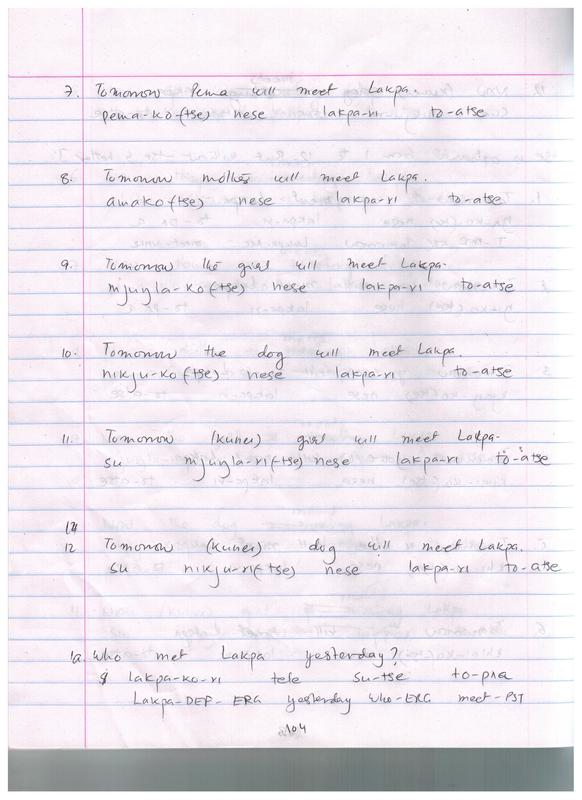 7. Tomorrow Pema will meet Lakpa.
pema-ko(tse) nese lakpa-ri to-atse
8. Tomorrow mother will meet Lakpa.
amako(tse) nese lakpa-ri to-atse
9. Tomorrow the girl will meet Lakpa.
mjuyla-ko(tse) nese lakpa-ri to-atse
10. Tomorrow the dog will meet Lakpa.
nikju-ko(tse) nese lakpa-ri to-atse
11. Tomorrow (kunei) girl will meet Lakpa.
su mjuyla-ri(-tse) nese lakpa-ri to-atse
12 Tomorrow (kunei) dog will meet Lakpa.
su nikju-ri(-tse) nese lakpa-ri to-atse
1a. Who met Lakpa yesterday?
lakpa-ko-ri tele su-tse to-pna
Lakpa-DEF-ERG yesterday who-ERG meet-PST
104